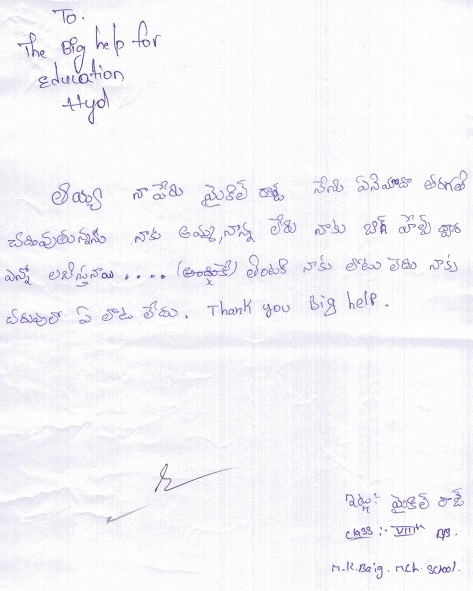 To.
The Big help for
Education
Hyd
అయ్య నా పేరు మైకిల్ రాజ్ నేను ఏనిమిదొ తరగతి
చదువుతున్నాను నాకు అమ్మ, నాన్న లేరు నాకు బిగ్ హెల్ప్ ద్వార
ఎన్నో లబిస్తునాయి.... తింటకి నాకు లోటు లేదు నాకు
చదువులో ఏ లోటు లేదు. Thank you Big help.
ఇట్లు: మైకిల్ రాజ్
class :- VIIIth
M.R.Baig. Mch. School.